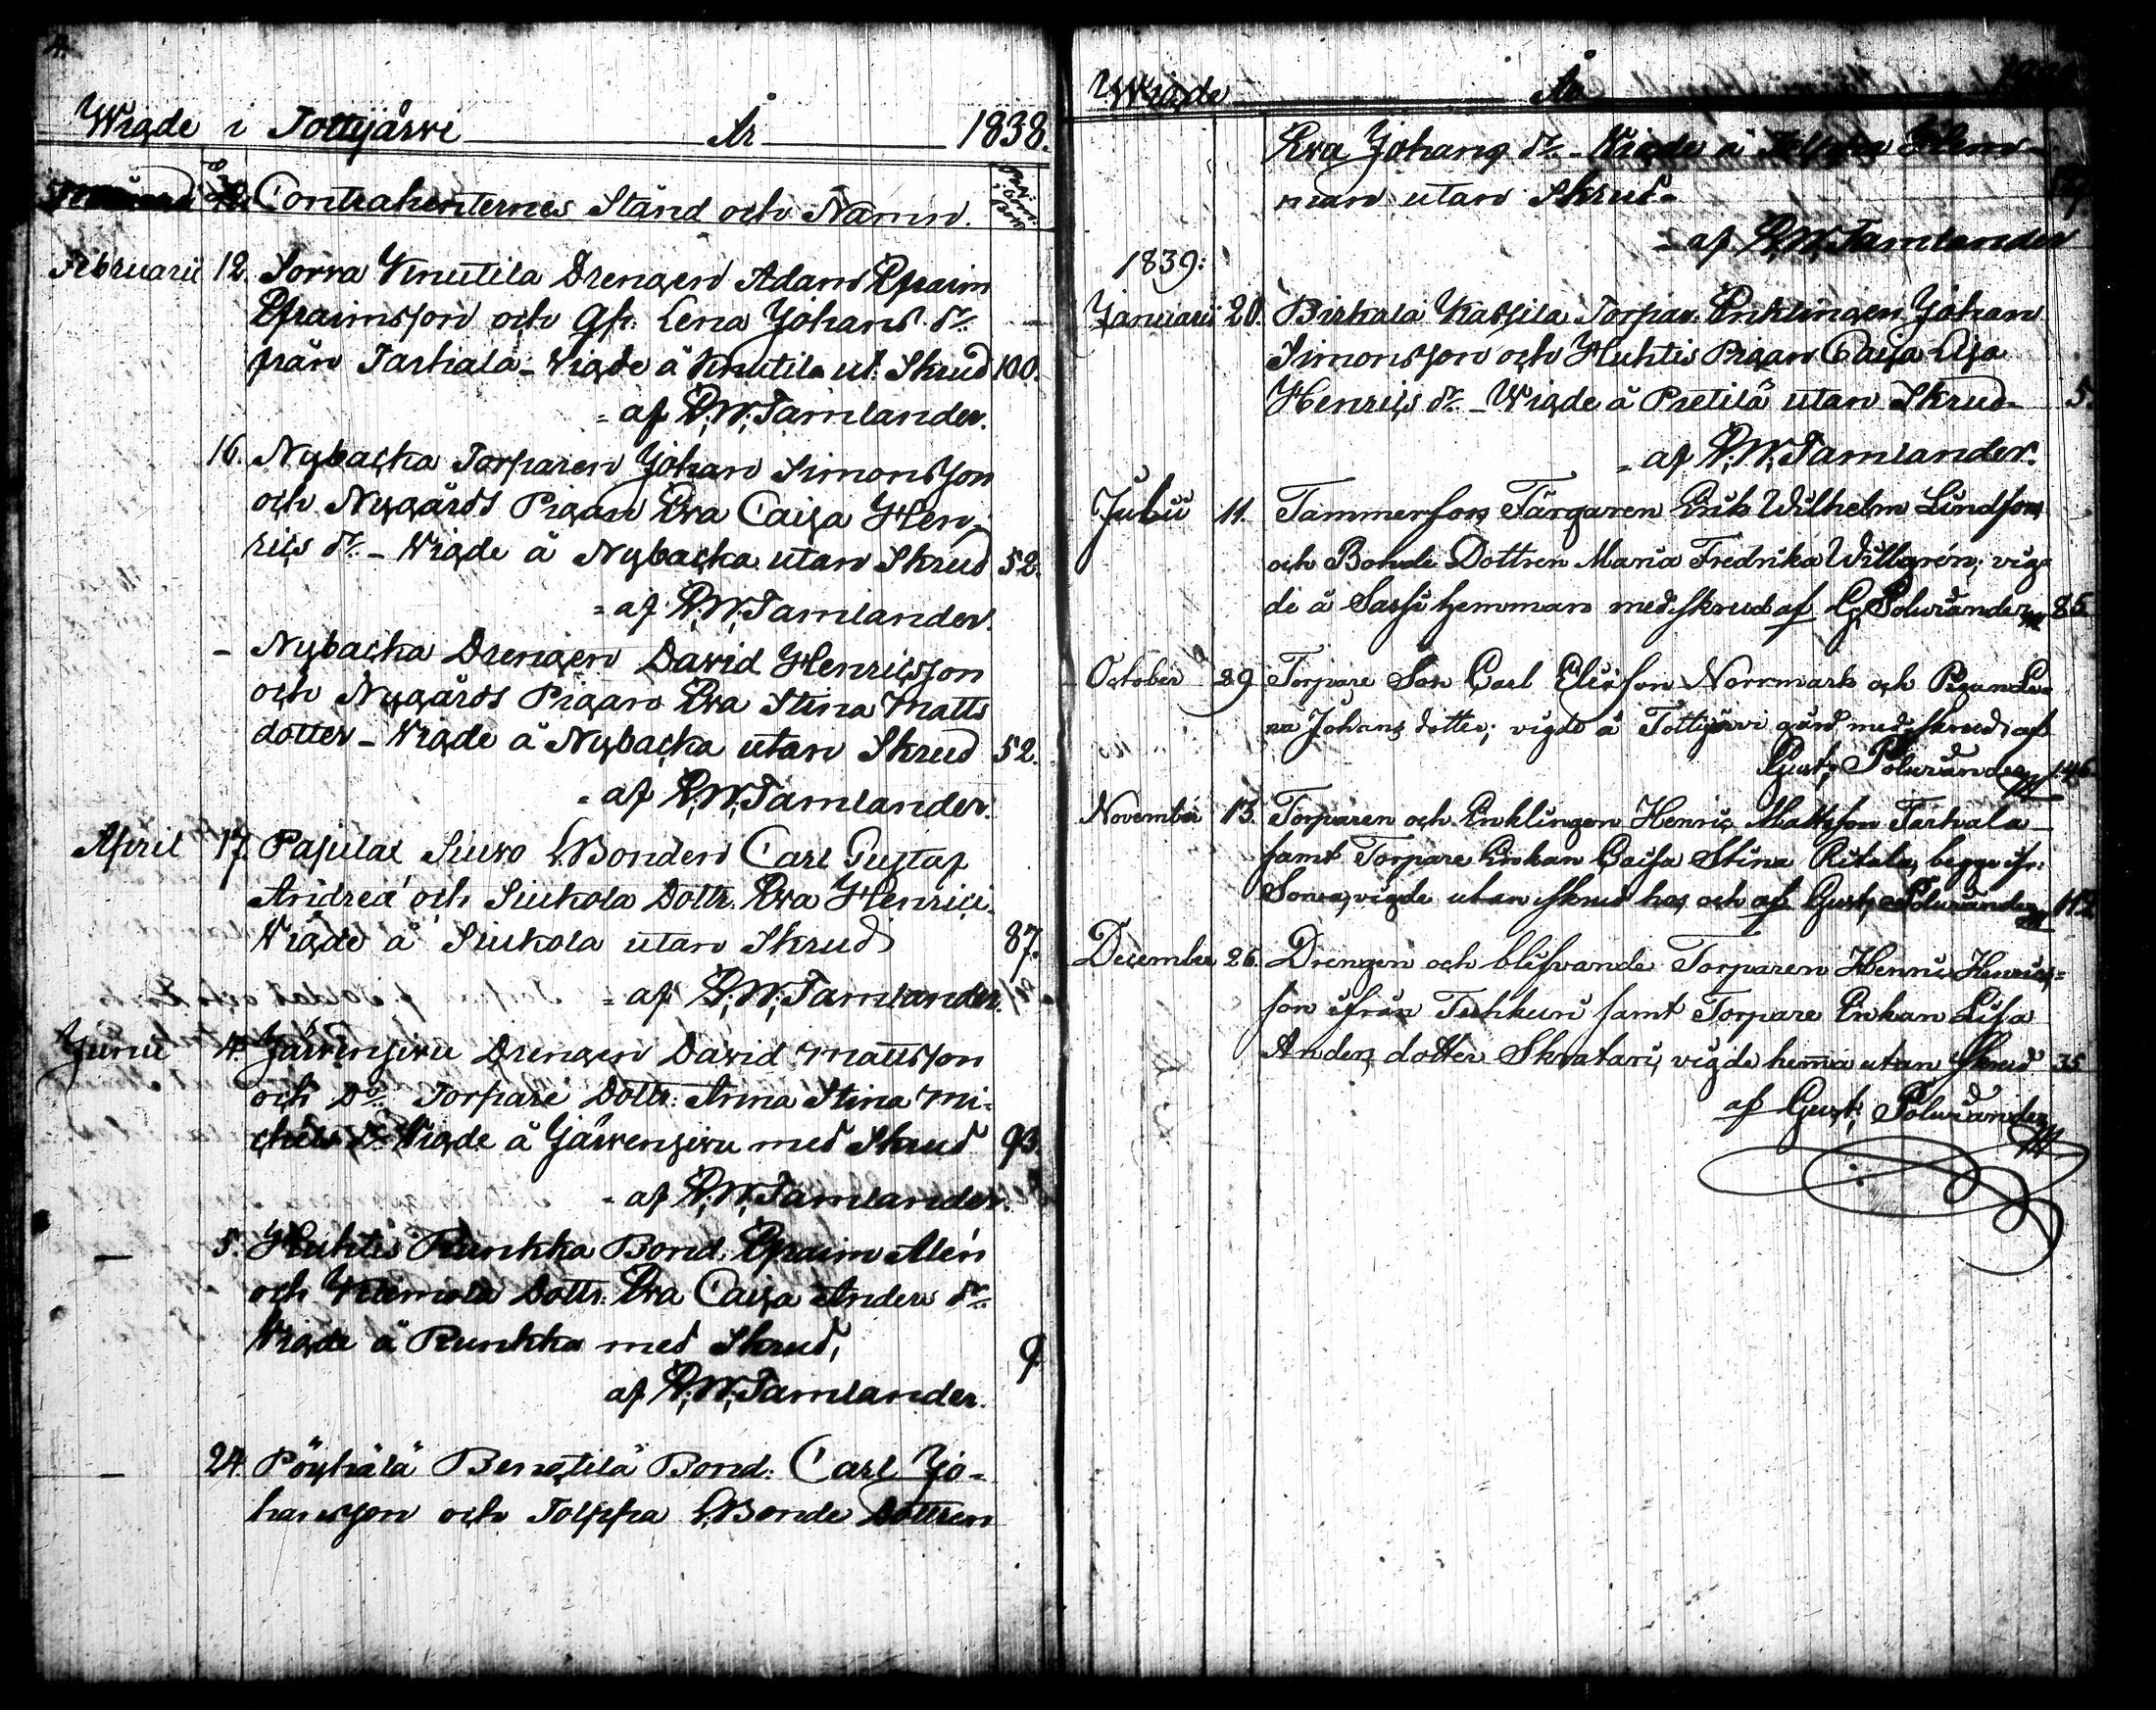 Wigde i Tottijärwi År 1838.
Contrahenternes Stånd och Namn.
Februarii 12. Sorra Knutila Drengen Adam Efraim
Efraimsson och Gh. Lena Johans dr.
från Tarhala - Wigde å Knutila ut. Skrud 100.
- af R.W.Tamlander.
16. Nybacka Torparen Johan Simonsson
och Nygårds Pigan Eva Caisa Hen-
rics dr. - Wigde å Nybacka utan Skrud 52.
- af R.W.Tamlander.
- Nybacka Drengen David Henricsson
och Nygårds Pigan Eva Stina Matts
dotter - Wigde å Nybacka utan Skrud 52.
- af R.W.Tamlander.
April 17. Pajulax Siuro L.Bonden Carl Gustaf
Andreæ och Siukola Dottr. Eva Henrici.
Wigde å Siukola utan Skrud 87.
- af R.W.Tamlander.
Junii 4. Järvensivu Drengen David Mattsson
och Do. Torpare Dottr. Anna Stina Mi-
chels dr. Wigde å Järvensivu med Skrud 93.
- af R.W.Tamlander.
- 5. Huhtis Runkka Bond. Efraim Alén
och Dottr. Eva Caisa Anders dr.
Wigde å Runkka med Skrud, 9
af R.W.Tamlander.
- 24. Pöyhälä Bengtilä Bond. Carl Jo-
hansson och Tolppa L.Bonde Dottren
Wigde År
Eva Johans dr. - Wigde å Tolppa Hem-
man utan Skrud -
- af R.W.Tamlander
1839:
Januarii 20. Birkala Torpar. Enklingen Johan
Simonsson och Huhtis Pigan Caisa Lisa
Henrics dr. - Wigde å Pietilä utan Skrud - 5.
- af R.W.Tamlander.
Julii 11. Tammerfors Färgaren Erik Wilhelm Lindfors
och Bonde Dottren Maria Fredrika Willgrén; vig-
de å Sassi hemman med skrud af G. Polviander 85
October 29 Torpare Son Carl Ericsson Norrmark och Pigan Le-
na Johans dotter; vigde å Tottijärvi gård med skrud af
Gust. Polviander 146
November 13. Torparen och Enklingen Henric Mattsson Tarhala
samt Torpare Enkan Caisa Stina Ritala, begge ifr.
Sorra, vigde utan skrud hos och af Gust. Polviander 112
December 26. Drengen och blifvande Torparen Henric Henrics-
son ifrån Tuhkuri samt Torpare Enkan Lisa
Anders dotter Skratari, vigde hemma utan skrud 35
af Gust. Polviander